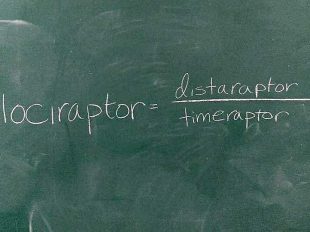 lociraptor = distaraptor
timeraptor